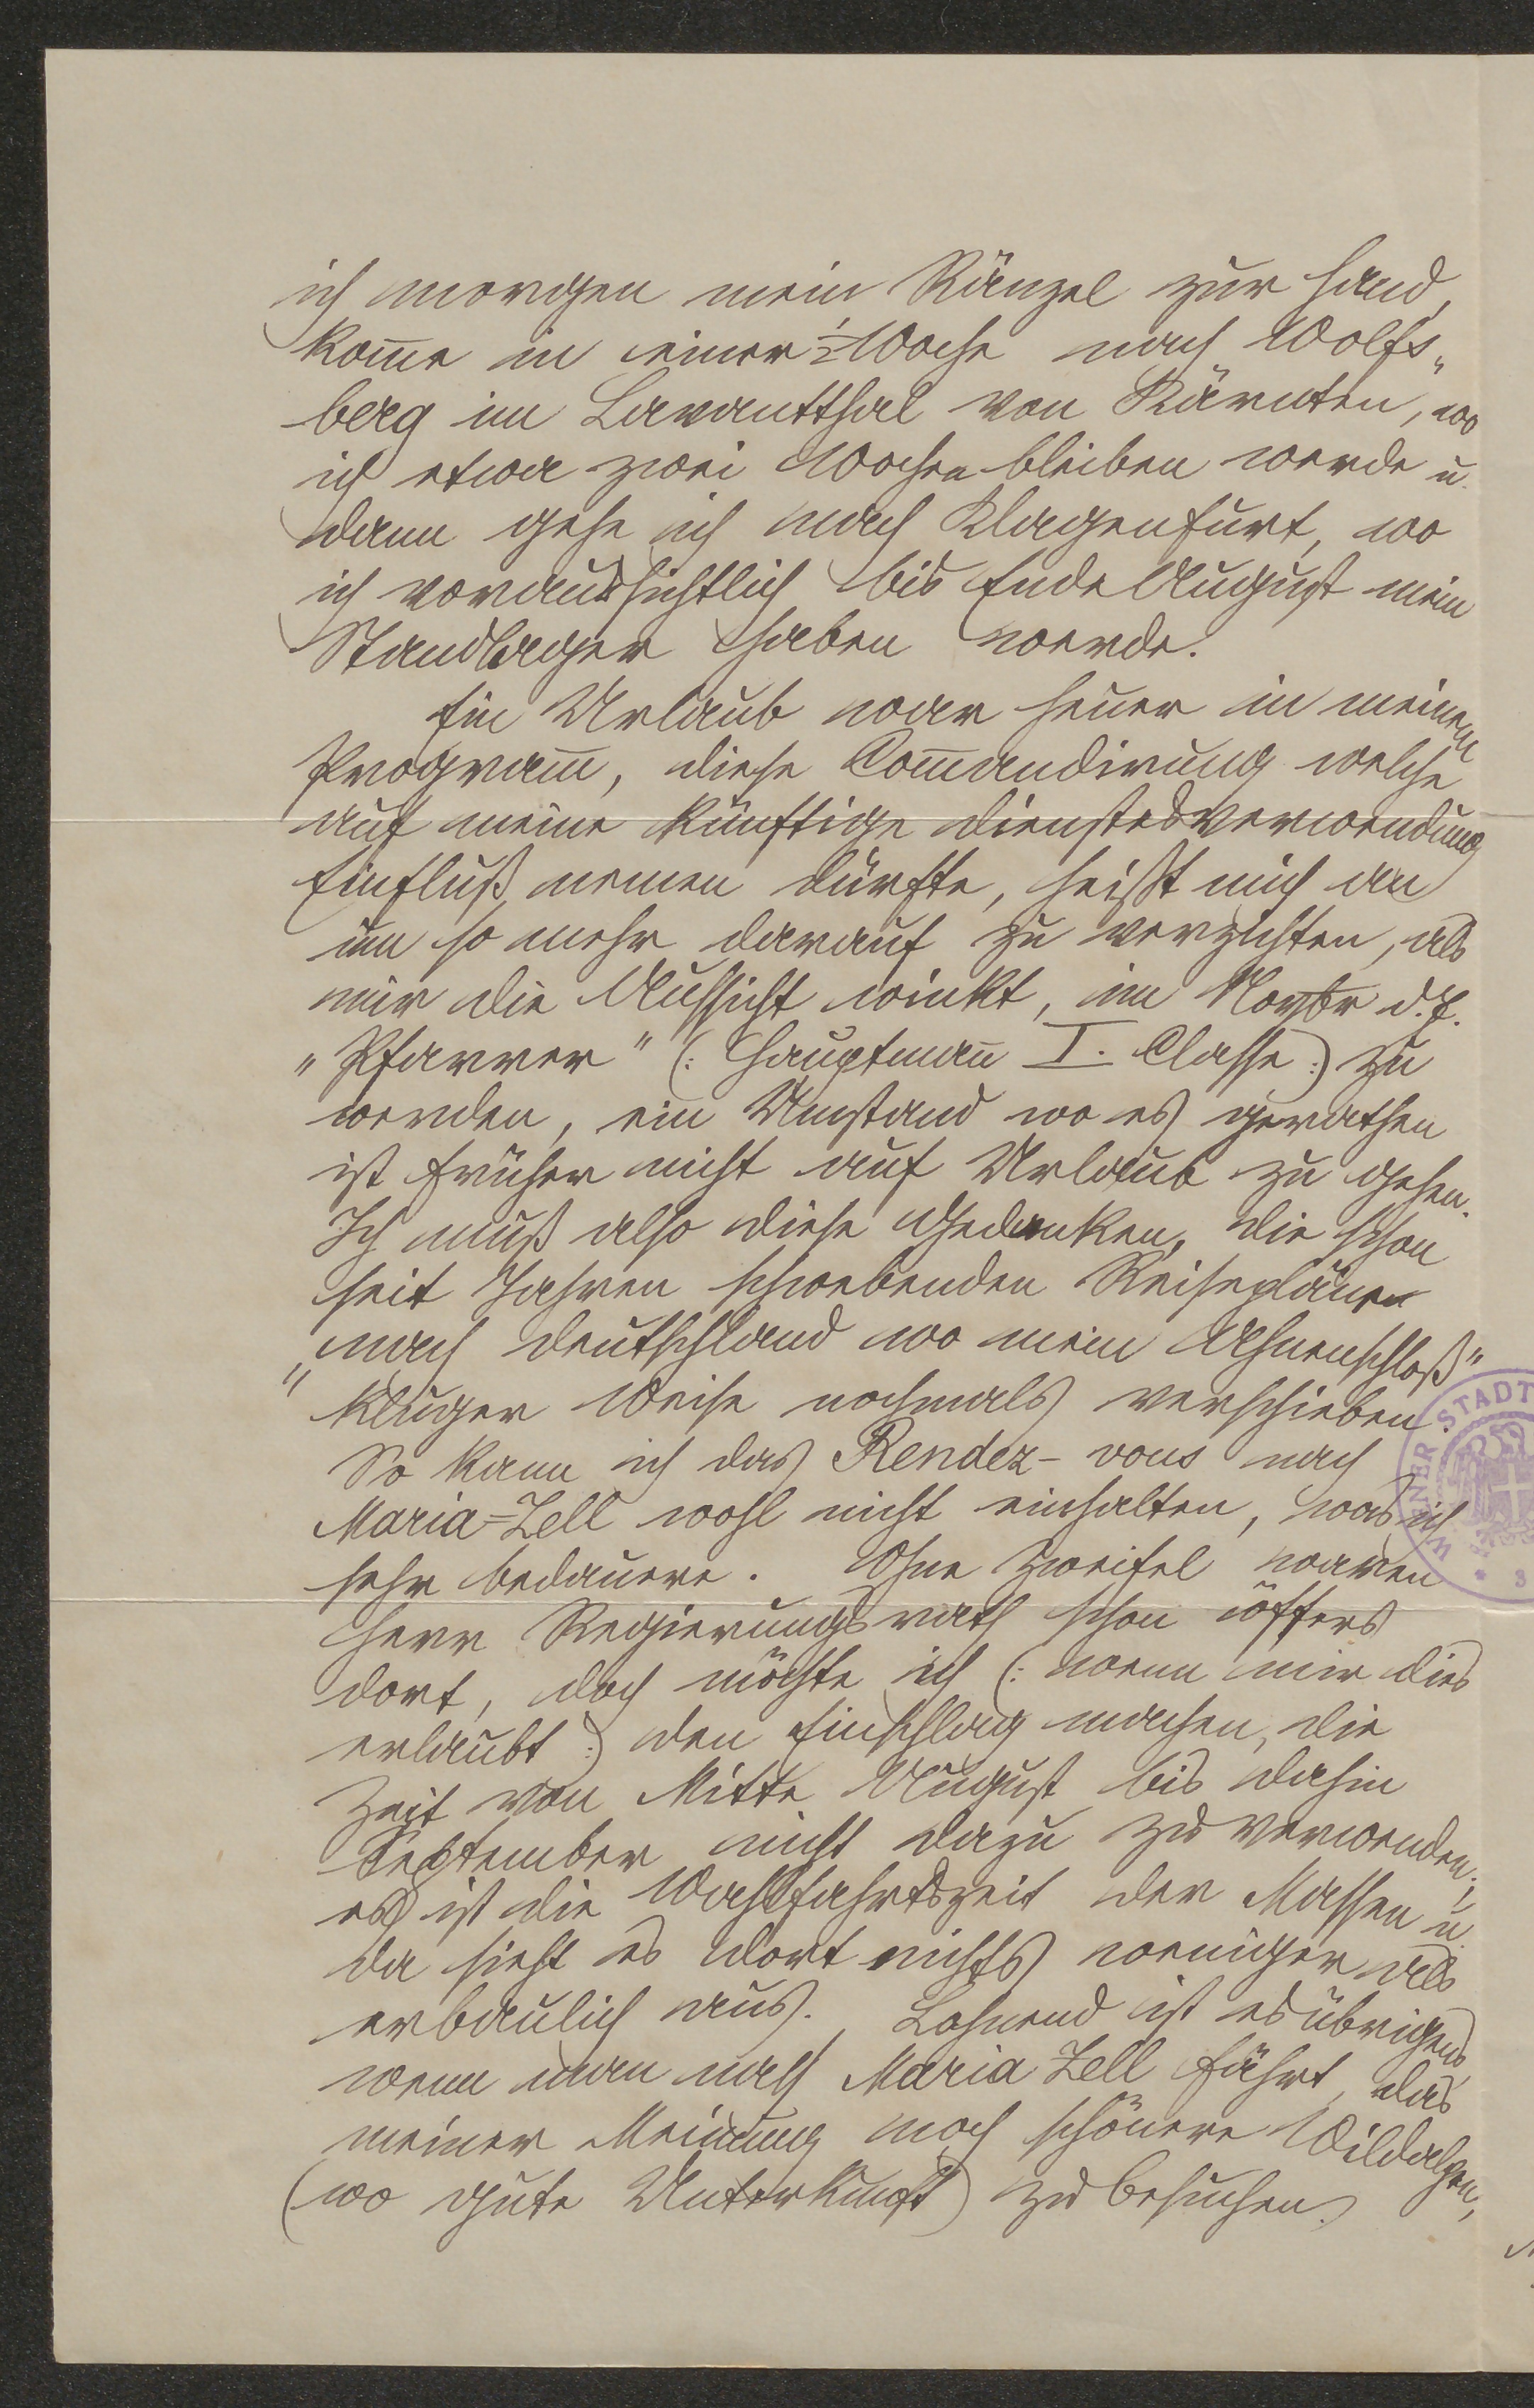 ich morgen mein Ränzel zur Hand,
kom̅e in einer ½ Woche nach Wolfs„
berg im Lavantthal von Kärnten, wo
ich etwa zwei Wochen bleiben werde u.
dann gehe ich nach Klagenfurt, wo
ich voraussichtlich bis Ende August mein
Standlager haben werde.
Ein Urlaub war heuer in meinem
Program̅, diese Com̅andirung welche
auf meine künftige Dienstesverwendung
Einfluß nemen dürfte, heißt mich an
um so mehr darauf zu verzichten, als
mir die Aussicht winkt, im Novbr d. J.
„Pfarrer" (: Hauptman̅ I. Classe :) zu
werden, ein Umstand wo es gerathen
ist früher nicht auf Urlaub zu gehen.
Ich muß also diese Gedanken, die schon
seit Jahren schwebenden Reisepläne
„nach Deutschland wo mein Ahnenschloß"
kluger Weise nochmals verschieben.
So kann ich das Rendez-vous nach
Maria=Zell wohl nicht einhalten, was ich
sehr bedauere. Ohne Zweifel waren
Herr Regierungsrath schon öfters
dort, doch möchte ich (: wenn mir dies
erlaubt :) den Einschlag machen, die
Zeit von Mitte August bis dahin
September nicht dazu zu verwenden;
es ist die Wallfahrtszeit der Massen u.
da sieht es dort nichts weniger als
erbaulich aus. Lohnend ist es übrigens
wenn man nach Maria Zell fährt, das
meiner Meinung noch schönere Wildalpen,
(wo gute Unterkunft) zu besuchen.
WIENER STADT